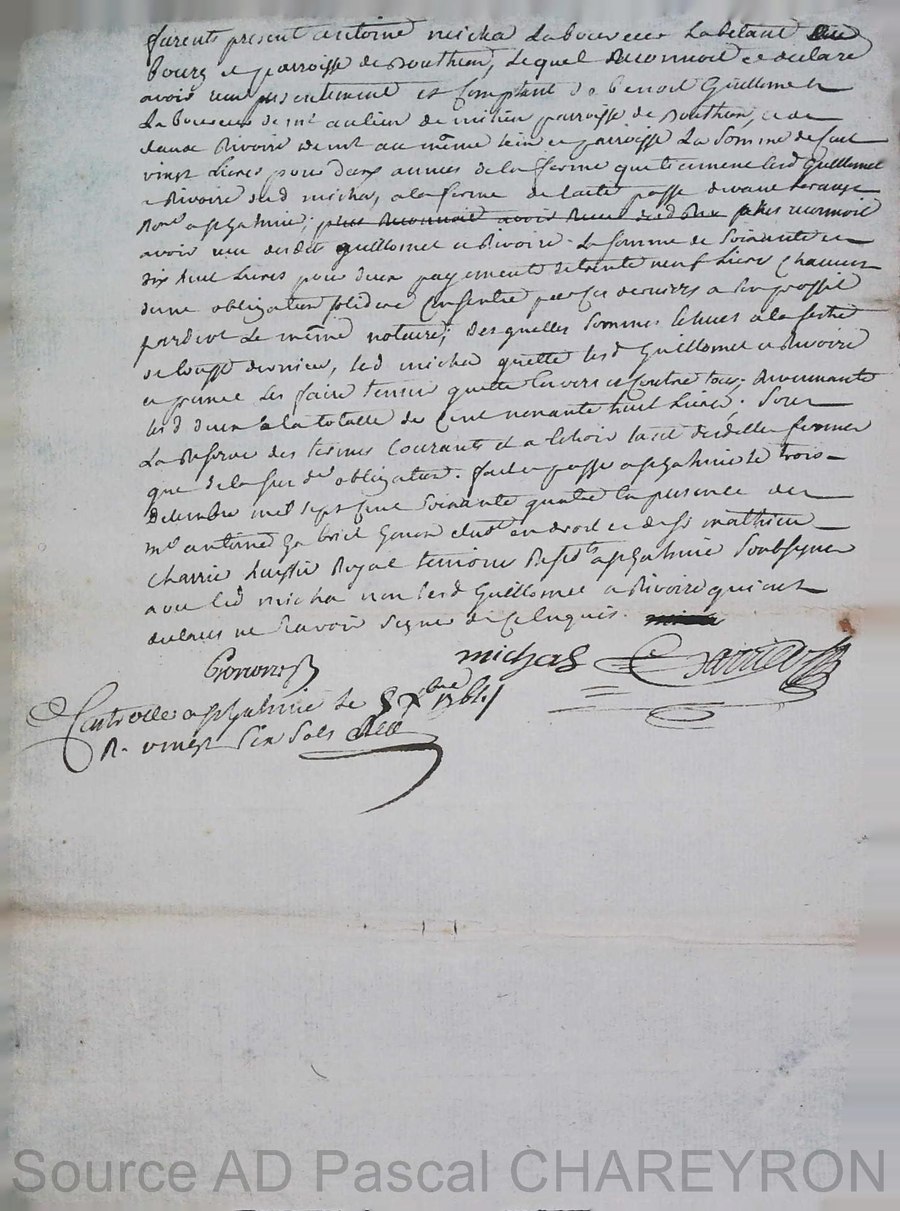 furent present antoine micha Laboureur habitant du
bourg et parroisse de Bouthion, Lequel Reconnoit et declare
avoir reçu presentement et Comptant de benoit Guillomet
Laboureur demt au lieu de milieu parroisse de Bouthion, et de
claude Rivoire demt au même lieu et parroisse La Somme de Cent
vingt Livres pour deux années de la ferme que tiennent lesd Guillomet
et Rivoire dud micha, a la forme de l'acte passé devant
Rore a st galmier; plus Reconnoit avoir Reçu dud plus reconnoit
avoir reçu desdits guillomet et Rivoire La Somme de Soixante et
dix huit Livres pour deux payements de trente neuf Livres Chacun
d'une obligation solidaire Consentie par ces derniers a son proffit
pardevt Le même notaire; desquelles Sommes échues a la feste
de derniere, led micha quitte lesd Guillomet et Rivoire
et promet les faire tenir quitte Envers et Contre tous; Revenantes
lesd deux a la totalle de Cent nonante huit Livres; Sous
La Reserve des termes Courants et a échoir tant de ferme
que de la susde obligation. fait et passé a st galmier le trois
décembre mil sept cent Soixante quatre En presence de
me antoine gabriel en droit et de Sr mathieu
Charrié huissier Royal temoins a st galmier Soubsignes
avec led micha non lesd Guillomet et Rivoire qui ont
declaré ne Scavoir Signer de Ce Enquis.
michas Charrié
Controllé a st galmier le 5 Xbre 1764
R. vingt Six Sols
Source AD Pascal CHAREYRON